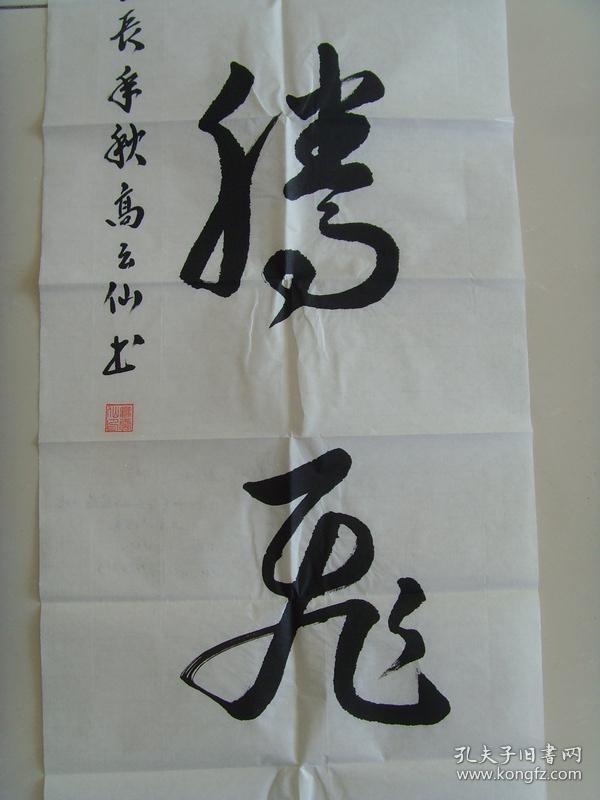 腾飞
长年秋高云仙书
孔夫子旧書网
www.kongfz.com